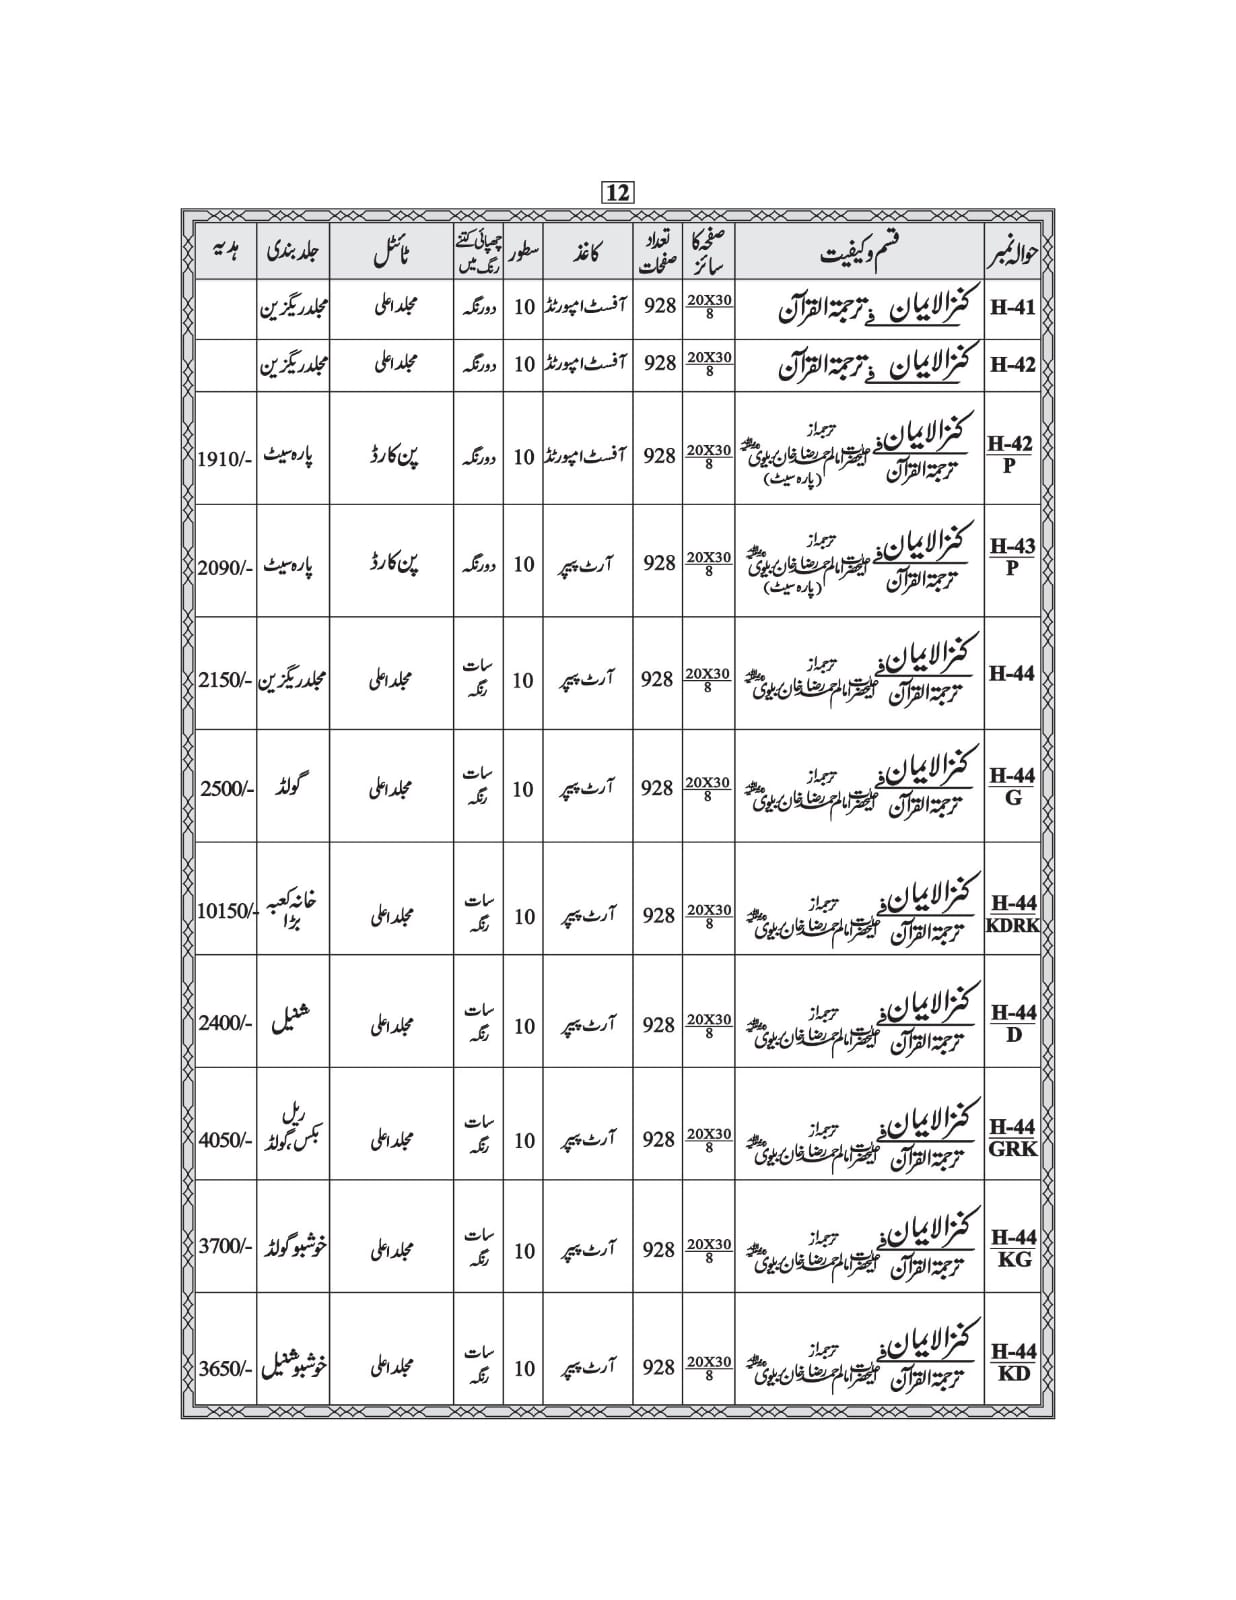 12
حوالہ نمبر قسم و کیفیت صفحہ کا سائز تعداد صفحات کاغذ سطور چھپائی کتنے رنگ میں ٹائٹل جلد بندی ہدیہ
H-41 کنزالایمان فی ترجمۃ القرآن 20X30/8 928 آفسٹ امپورٹڈ 10 دورنگہ مجلد اعلی مجلد ریگزین
H-42 کنزالایمان فی ترجمۃ القرآن 20X30/8 928 آفسٹ امپورٹڈ 10 دورنگہ مجلد اعلی مجلد ریگزین
H-42/P کنزالایمان فی ترجمۃ القرآن ترجمہ از اعلیٰحضرت امام احمد رضا خان بریلوی (پارہ سیٹ) 20X30/8 928 آفسٹ امپورٹڈ 10 دورنگہ پن کارڈ پارہ سیٹ 1910/-
H-43/P کنزالایمان فی ترجمۃ القرآن ترجمہ از اعلیٰحضرت امام احمد رضا خان بریلوی (پارہ سیٹ) 20X30/8 928 آرٹ پیپر 10 دورنگہ پن کارڈ پارہ سیٹ 2090/-
H-44 کنزالایمان فی ترجمۃ القرآن ترجمہ از اعلیٰحضرت امام احمد رضا خان بریلوی 20X30/8 928 آرٹ پیپر 10 سات رنگہ مجلد اعلی مجلد ریگزین 2150/-
H-44/G کنزالایمان فی ترجمۃ القرآن ترجمہ از اعلیٰحضرت امام احمد رضا خان بریلوی 20X30/8 928 آرٹ پیپر 10 سات رنگہ مجلد اعلی گولڈ 2500/-
H-44/KDRK کنزالایمان فی ترجمۃ القرآن ترجمہ از اعلیٰحضرت امام احمد رضا خان بریلوی 20X30/8 928 آرٹ پیپر 10 سات رنگہ مجلد اعلی خانہ کعبہ بڑا 10150/-
H-44/D کنزالایمان فی ترجمۃ القرآن ترجمہ از اعلیٰحضرت امام احمد رضا خان بریلوی 20X30/8 928 آرٹ پیپر 10 سات رنگہ مجلد اعلی شنیل 2400/-
H-44/GRK کنزالایمان فی ترجمۃ القرآن ترجمہ از اعلیٰحضرت امام احمد رضا خان بریلوی 20X30/8 928 آرٹ پیپر 10 سات رنگہ مجلد اعلی ریل بکس، گولڈ 4050/-
H-44/KG کنزالایمان فی ترجمۃ القرآن ترجمہ از اعلیٰحضرت امام احمد رضا خان بریلوی 20X30/8 928 آرٹ پیپر 10 سات رنگہ مجلد اعلی خوشبو گولڈ 3700/-
H-44/KD کنزالایمان فی ترجمۃ القرآن ترجمہ از اعلیٰحضرت امام احمد رضا خان بریلوی 20X30/8 928 آرٹ پیپر 10 سات رنگہ مجلد اعلی خوشبو شنیل 3650/-